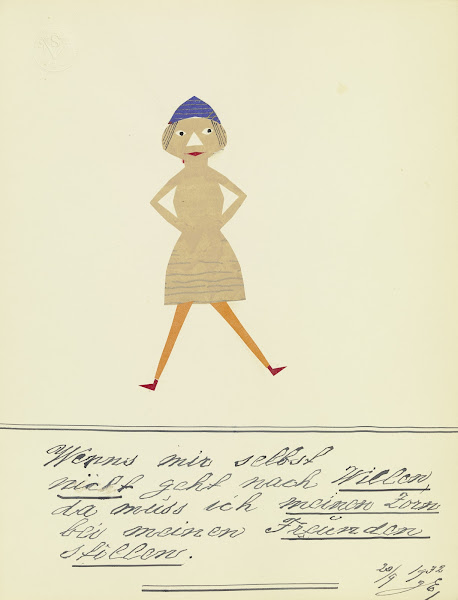 Wenns mir selbst
nicht geht nach Willen,
da muss ich meinen Zorn
bei meinen Freunden
stillen.
20/9 1932